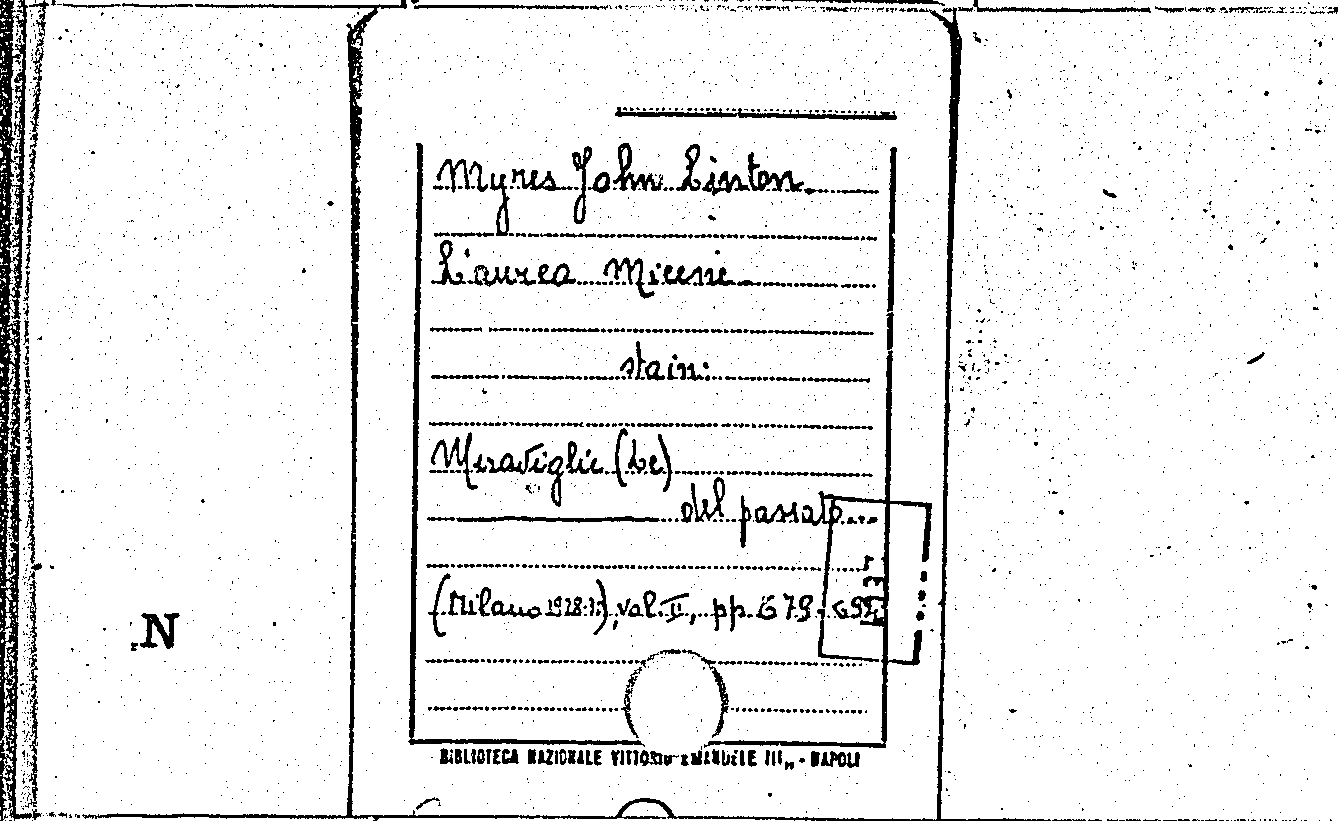 Myres John Linton.
L'aurea Micene.
stain:
Meraviglie (Le)
del passato...
(Milano 1928-3.), vol. II, pp. 679-69
N
BIBLIOTECA NAZIONALE VITTORIO EMANUELE III„ - NAPOLI